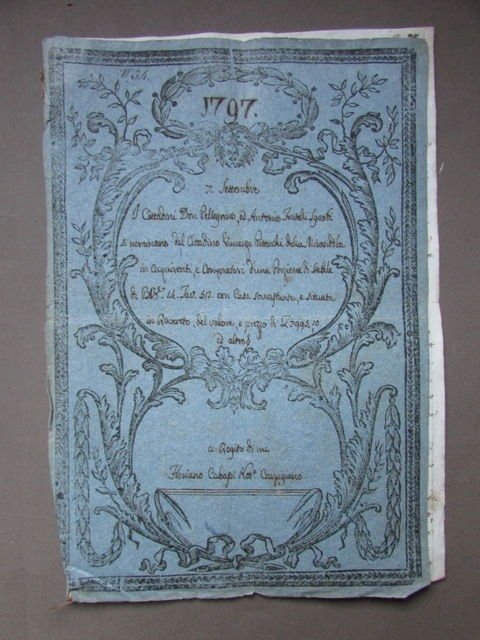 N. 34.
1797.
7. Settembre
I Cittadini Don Pellegrino, ed Antonio Fratelli Sgarbi
si nominano dal Cittadino Vincenzo della Mirandola
in Acquirenti, e Compratori d'una Porzione di Stabile
di B. 14. Tav. 51/2. con Casa sovrastante, e situata
in Rovereto, del valore, e prezzo di £ 7992,10
ed altro
a Rogito di me
Floriano Cabassi Not.º Carpigiano